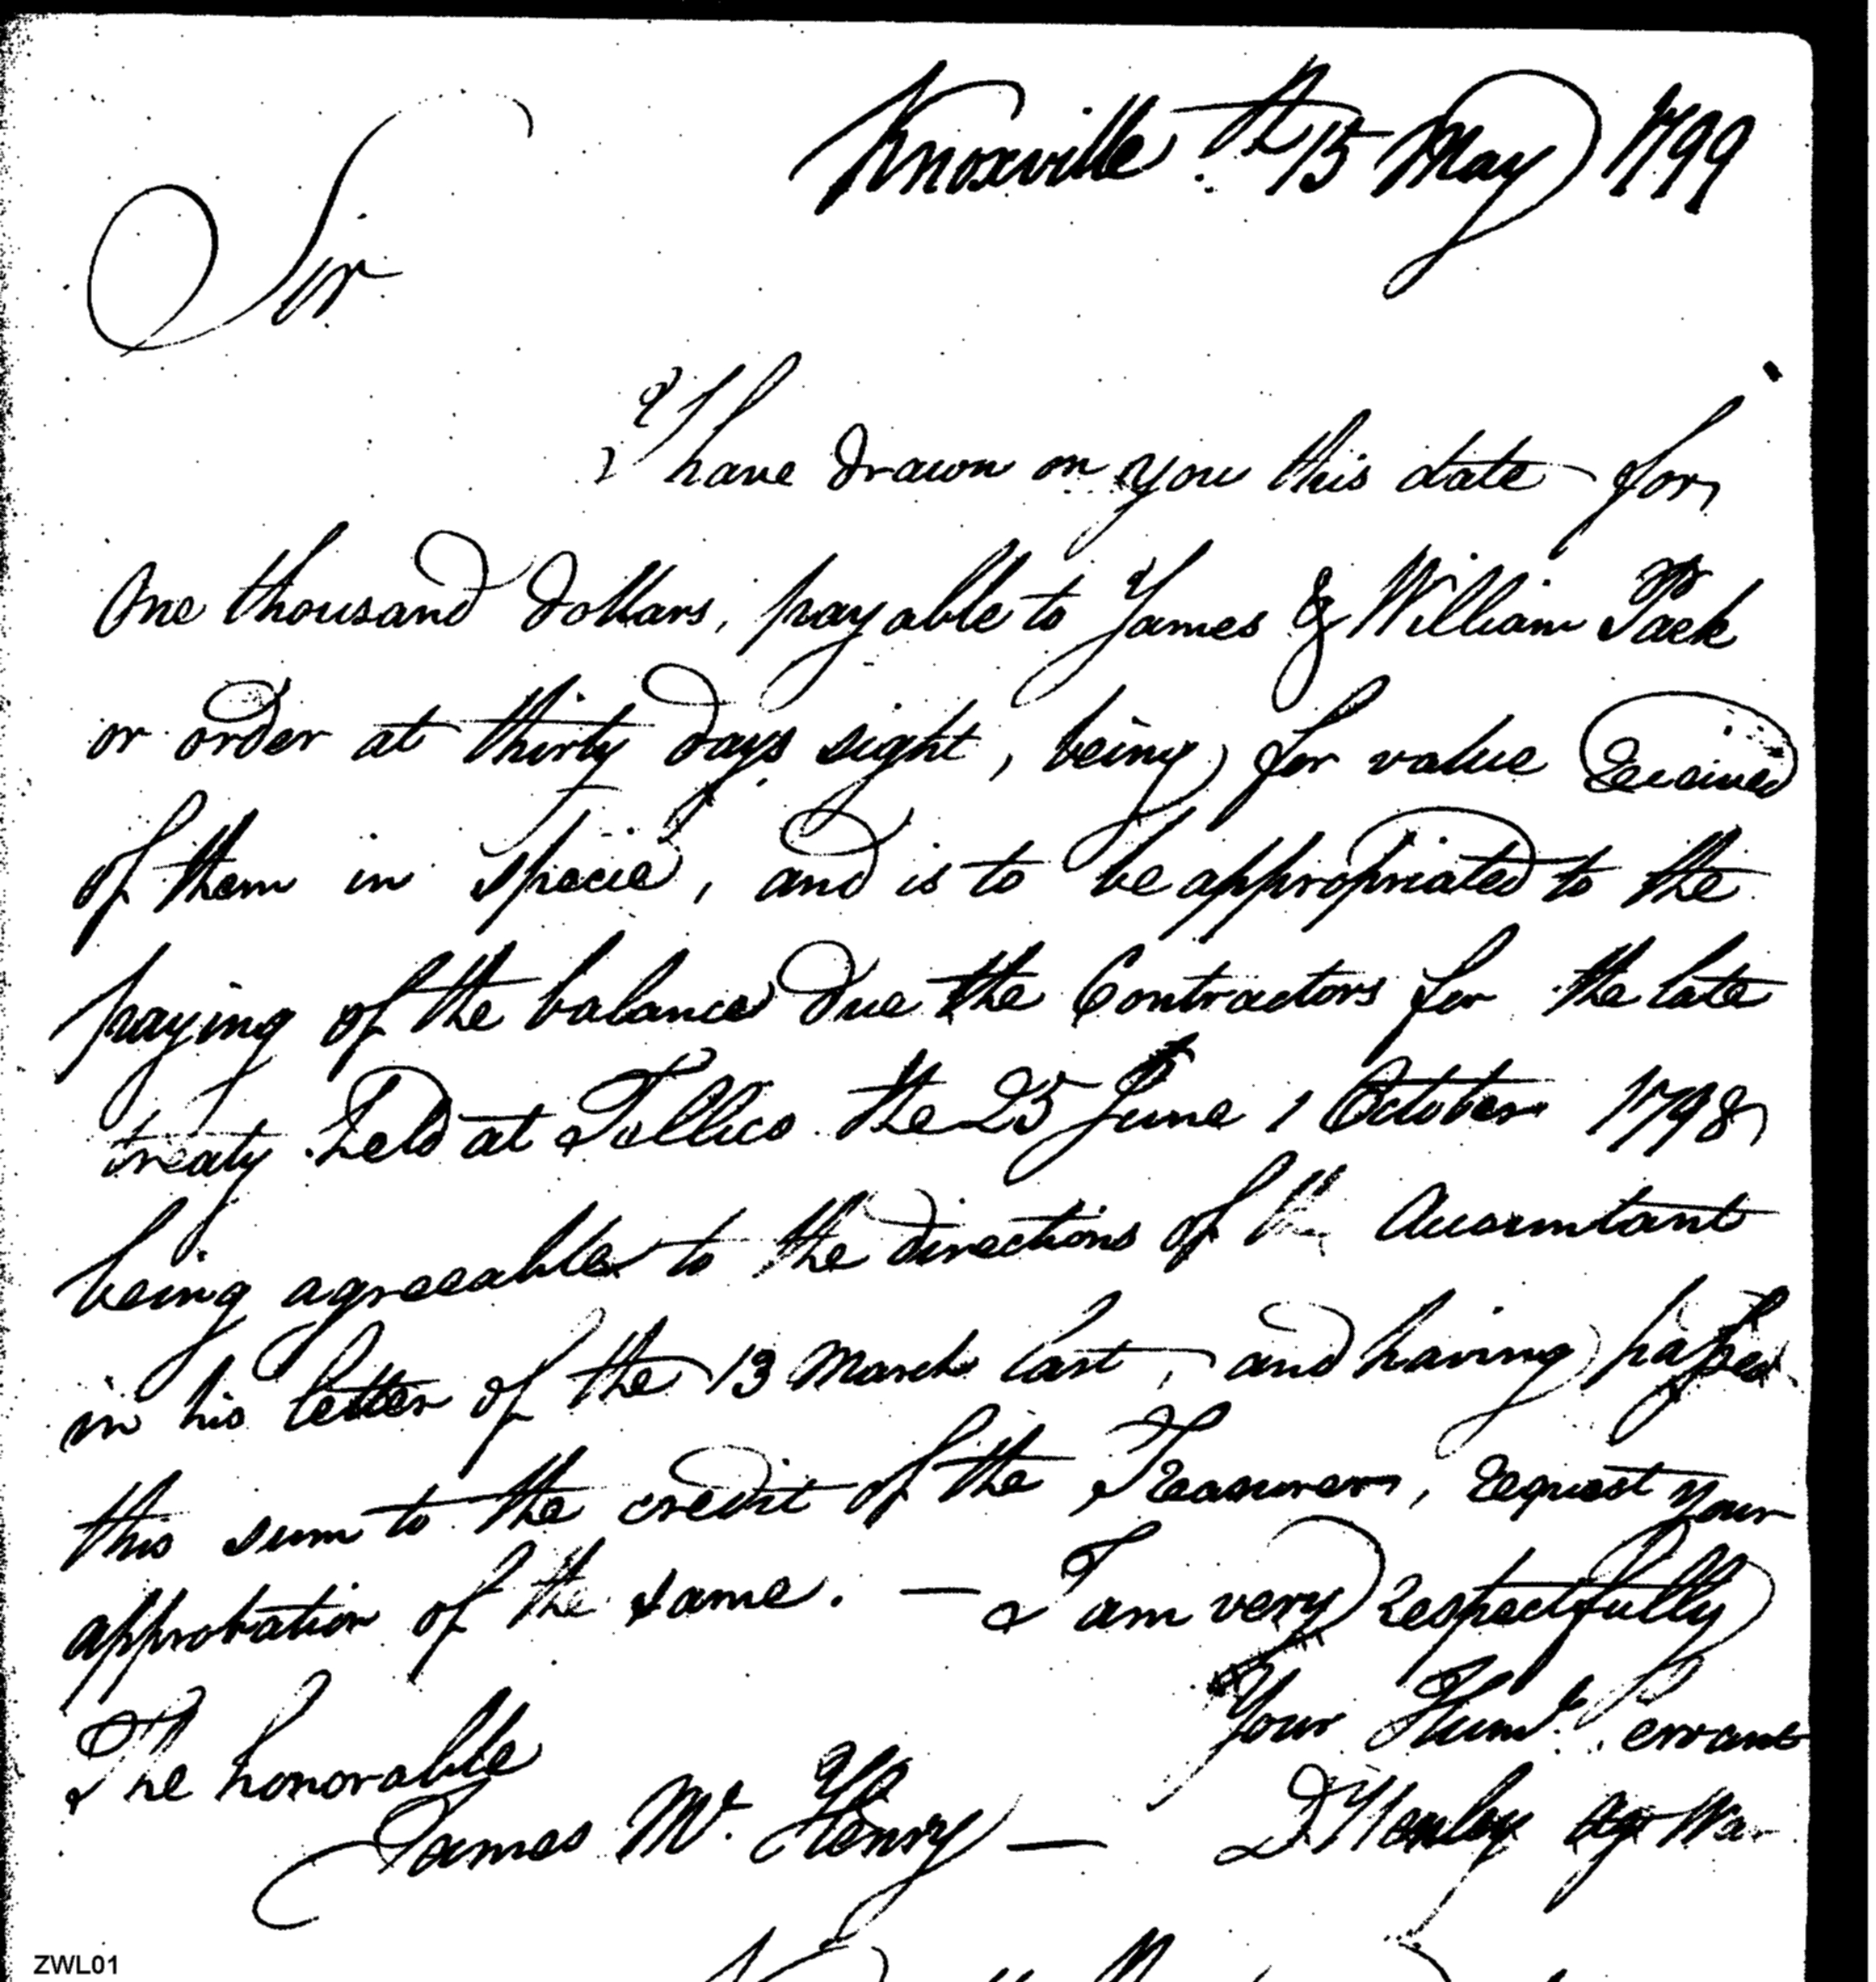 Knoxville th 15 May 1799
Sir
I have drawn on you this date for
One thousand dollars, payable to James & William Park
or order at thirty days sight, being for value Received
of them in specie, and is to be appropriated to the
paying of the balance due the Contractors for the late
treaty held at Tellico the 25 June 1 October 1798
being agreeable to the directions of the Accountant
in his letter of the 13 March last, and having passed
this sum to the credit of the Treasurer, request your
approbation of the same. — I am very respectfully
Your Huml. Servant
The honorable
James Mc. Henry — D Henley Ag War
ZWL01